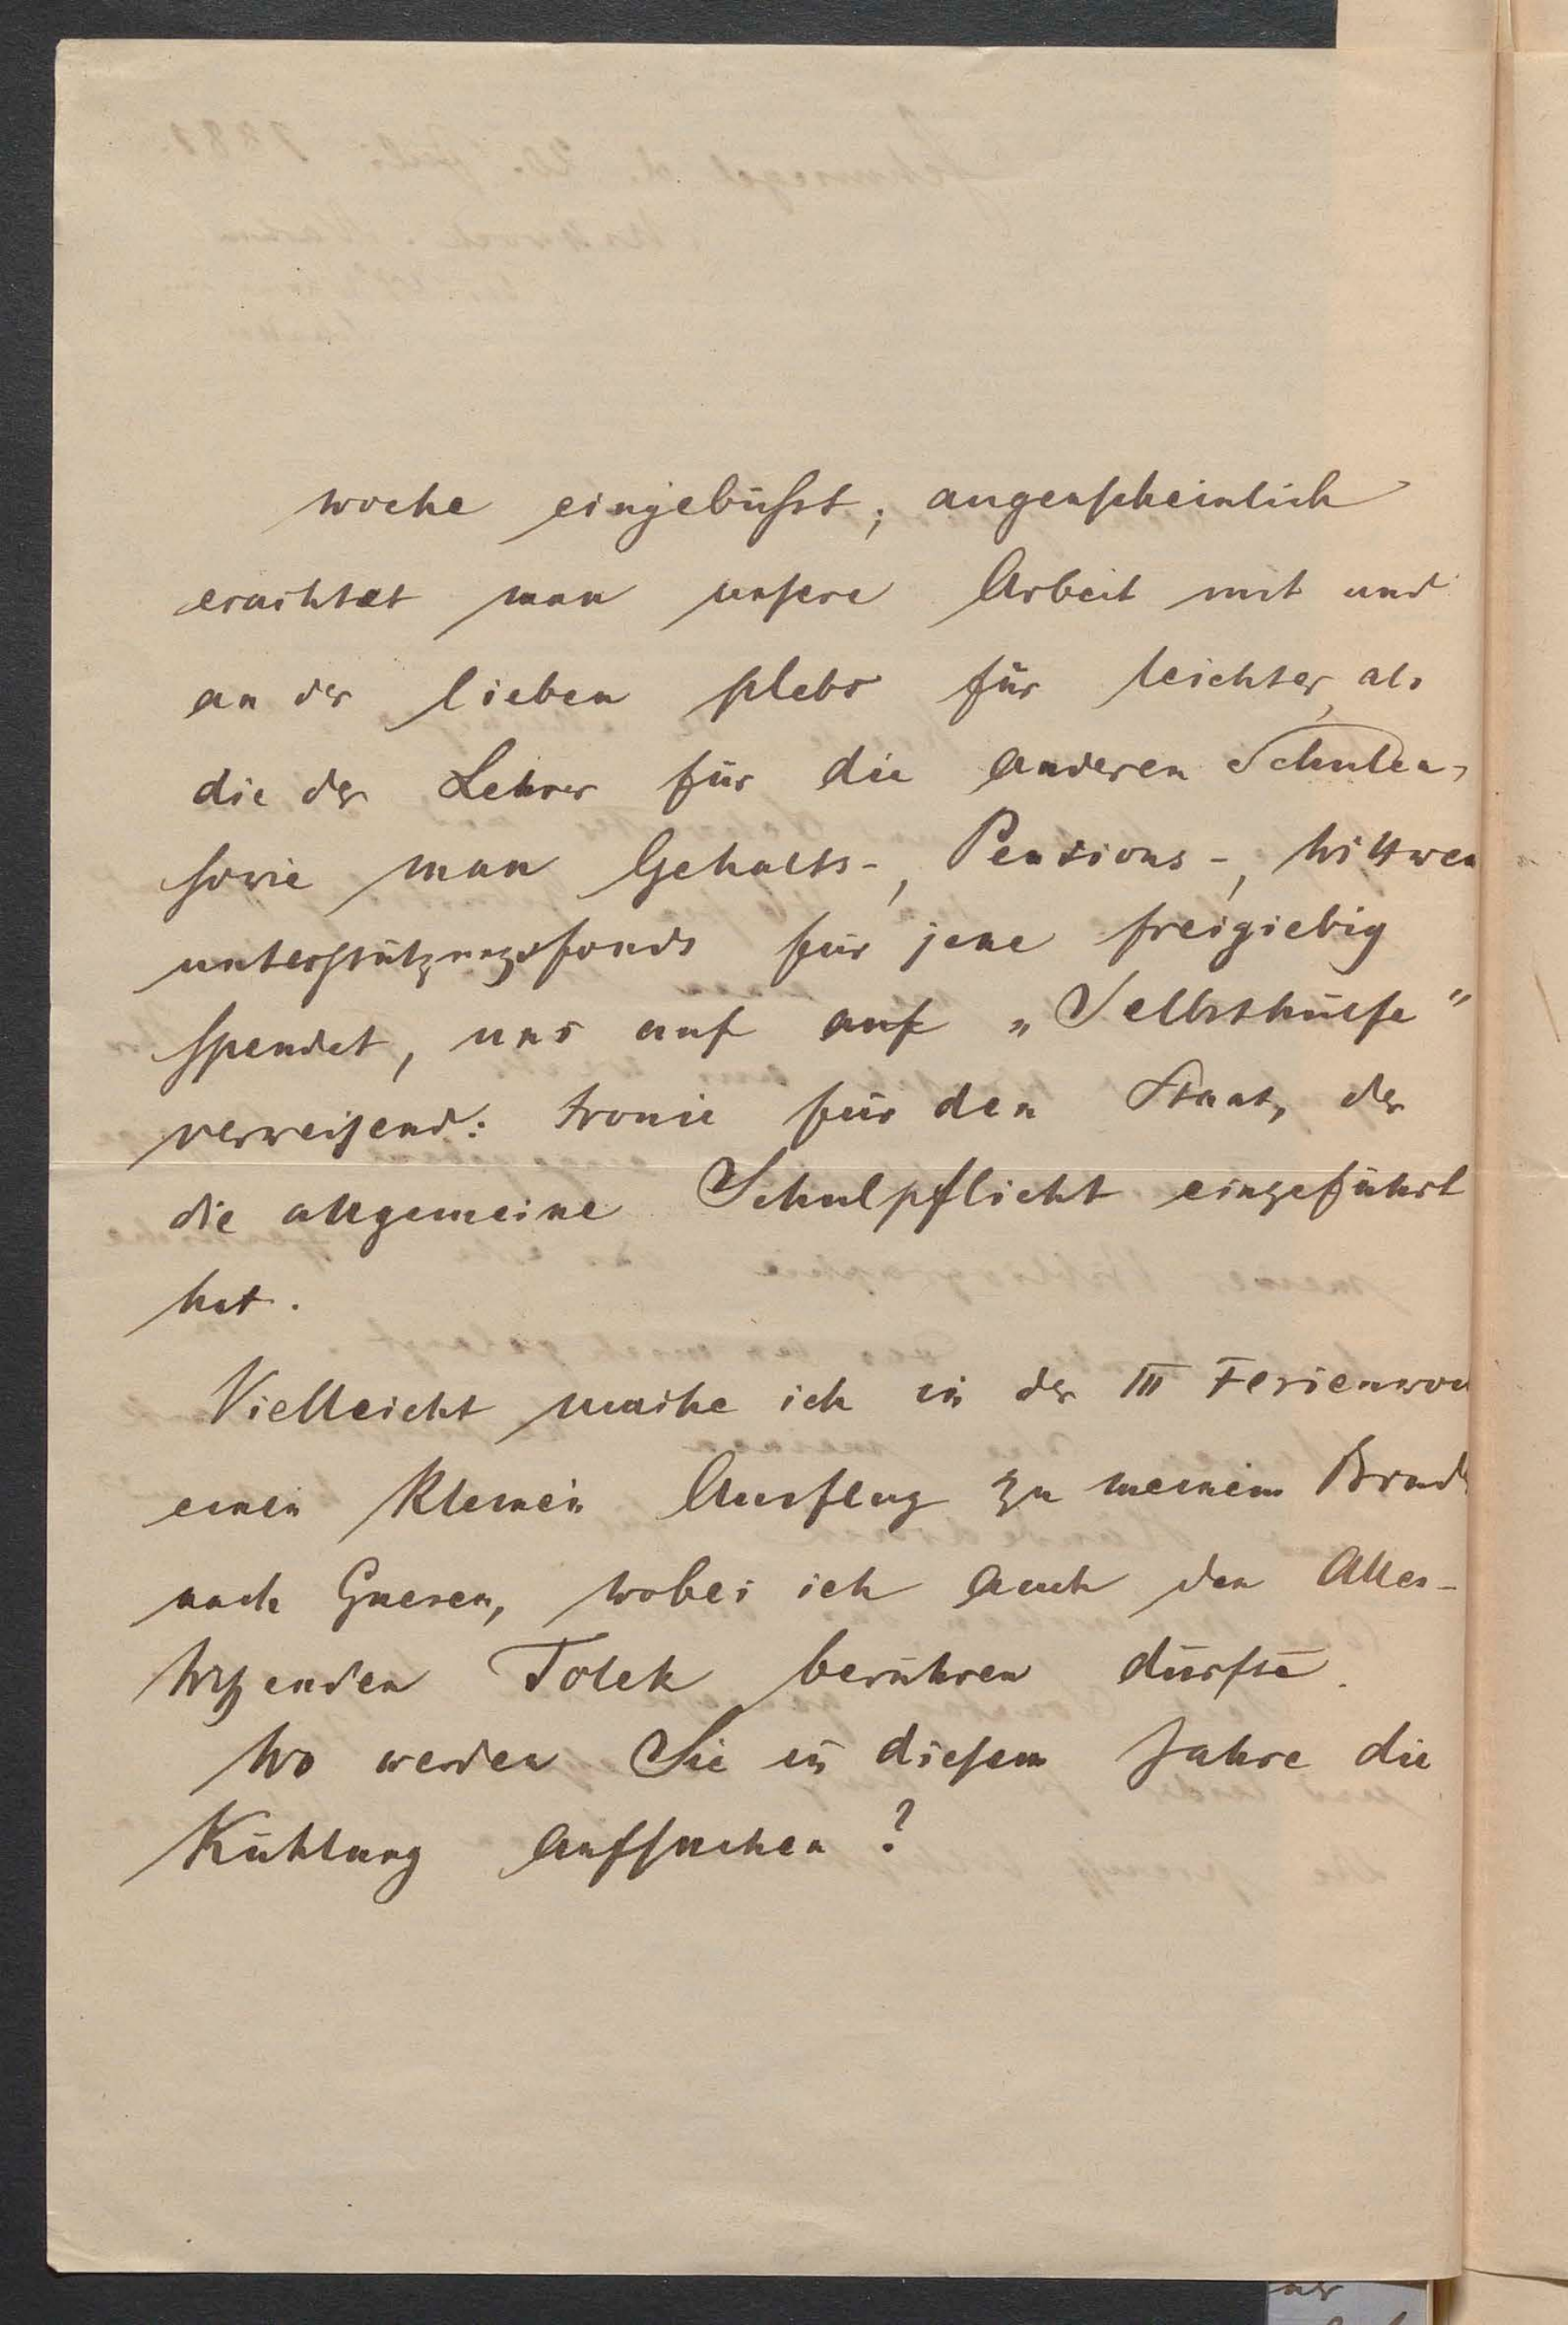 woche eingebüsst; augenscheinlich
erachtet man unsere Arbeit mit und
an der lieben plebs für leichter, als
die der Lehrer für die anderen Schulen,
sowie man Gehalts-, Pensions-, Wittwen
unterstützungsfonds für jene freigiebig
spendet, uns auf auf „Selbsthülfe"
verweisend: Ironie für den Staat, der
die allgemeine Schulpflicht eingeführt
hat.
Vielleicht mache ich in der III Ferienwo
einen kleinen Ausflug zu meinem Brud
nach Gnesen, wobei ich auch den Alles-
wissenden Tolek berühren dürfte.
Wo werden Sie in diesem Jahre die
Kühlung aufsuchen?